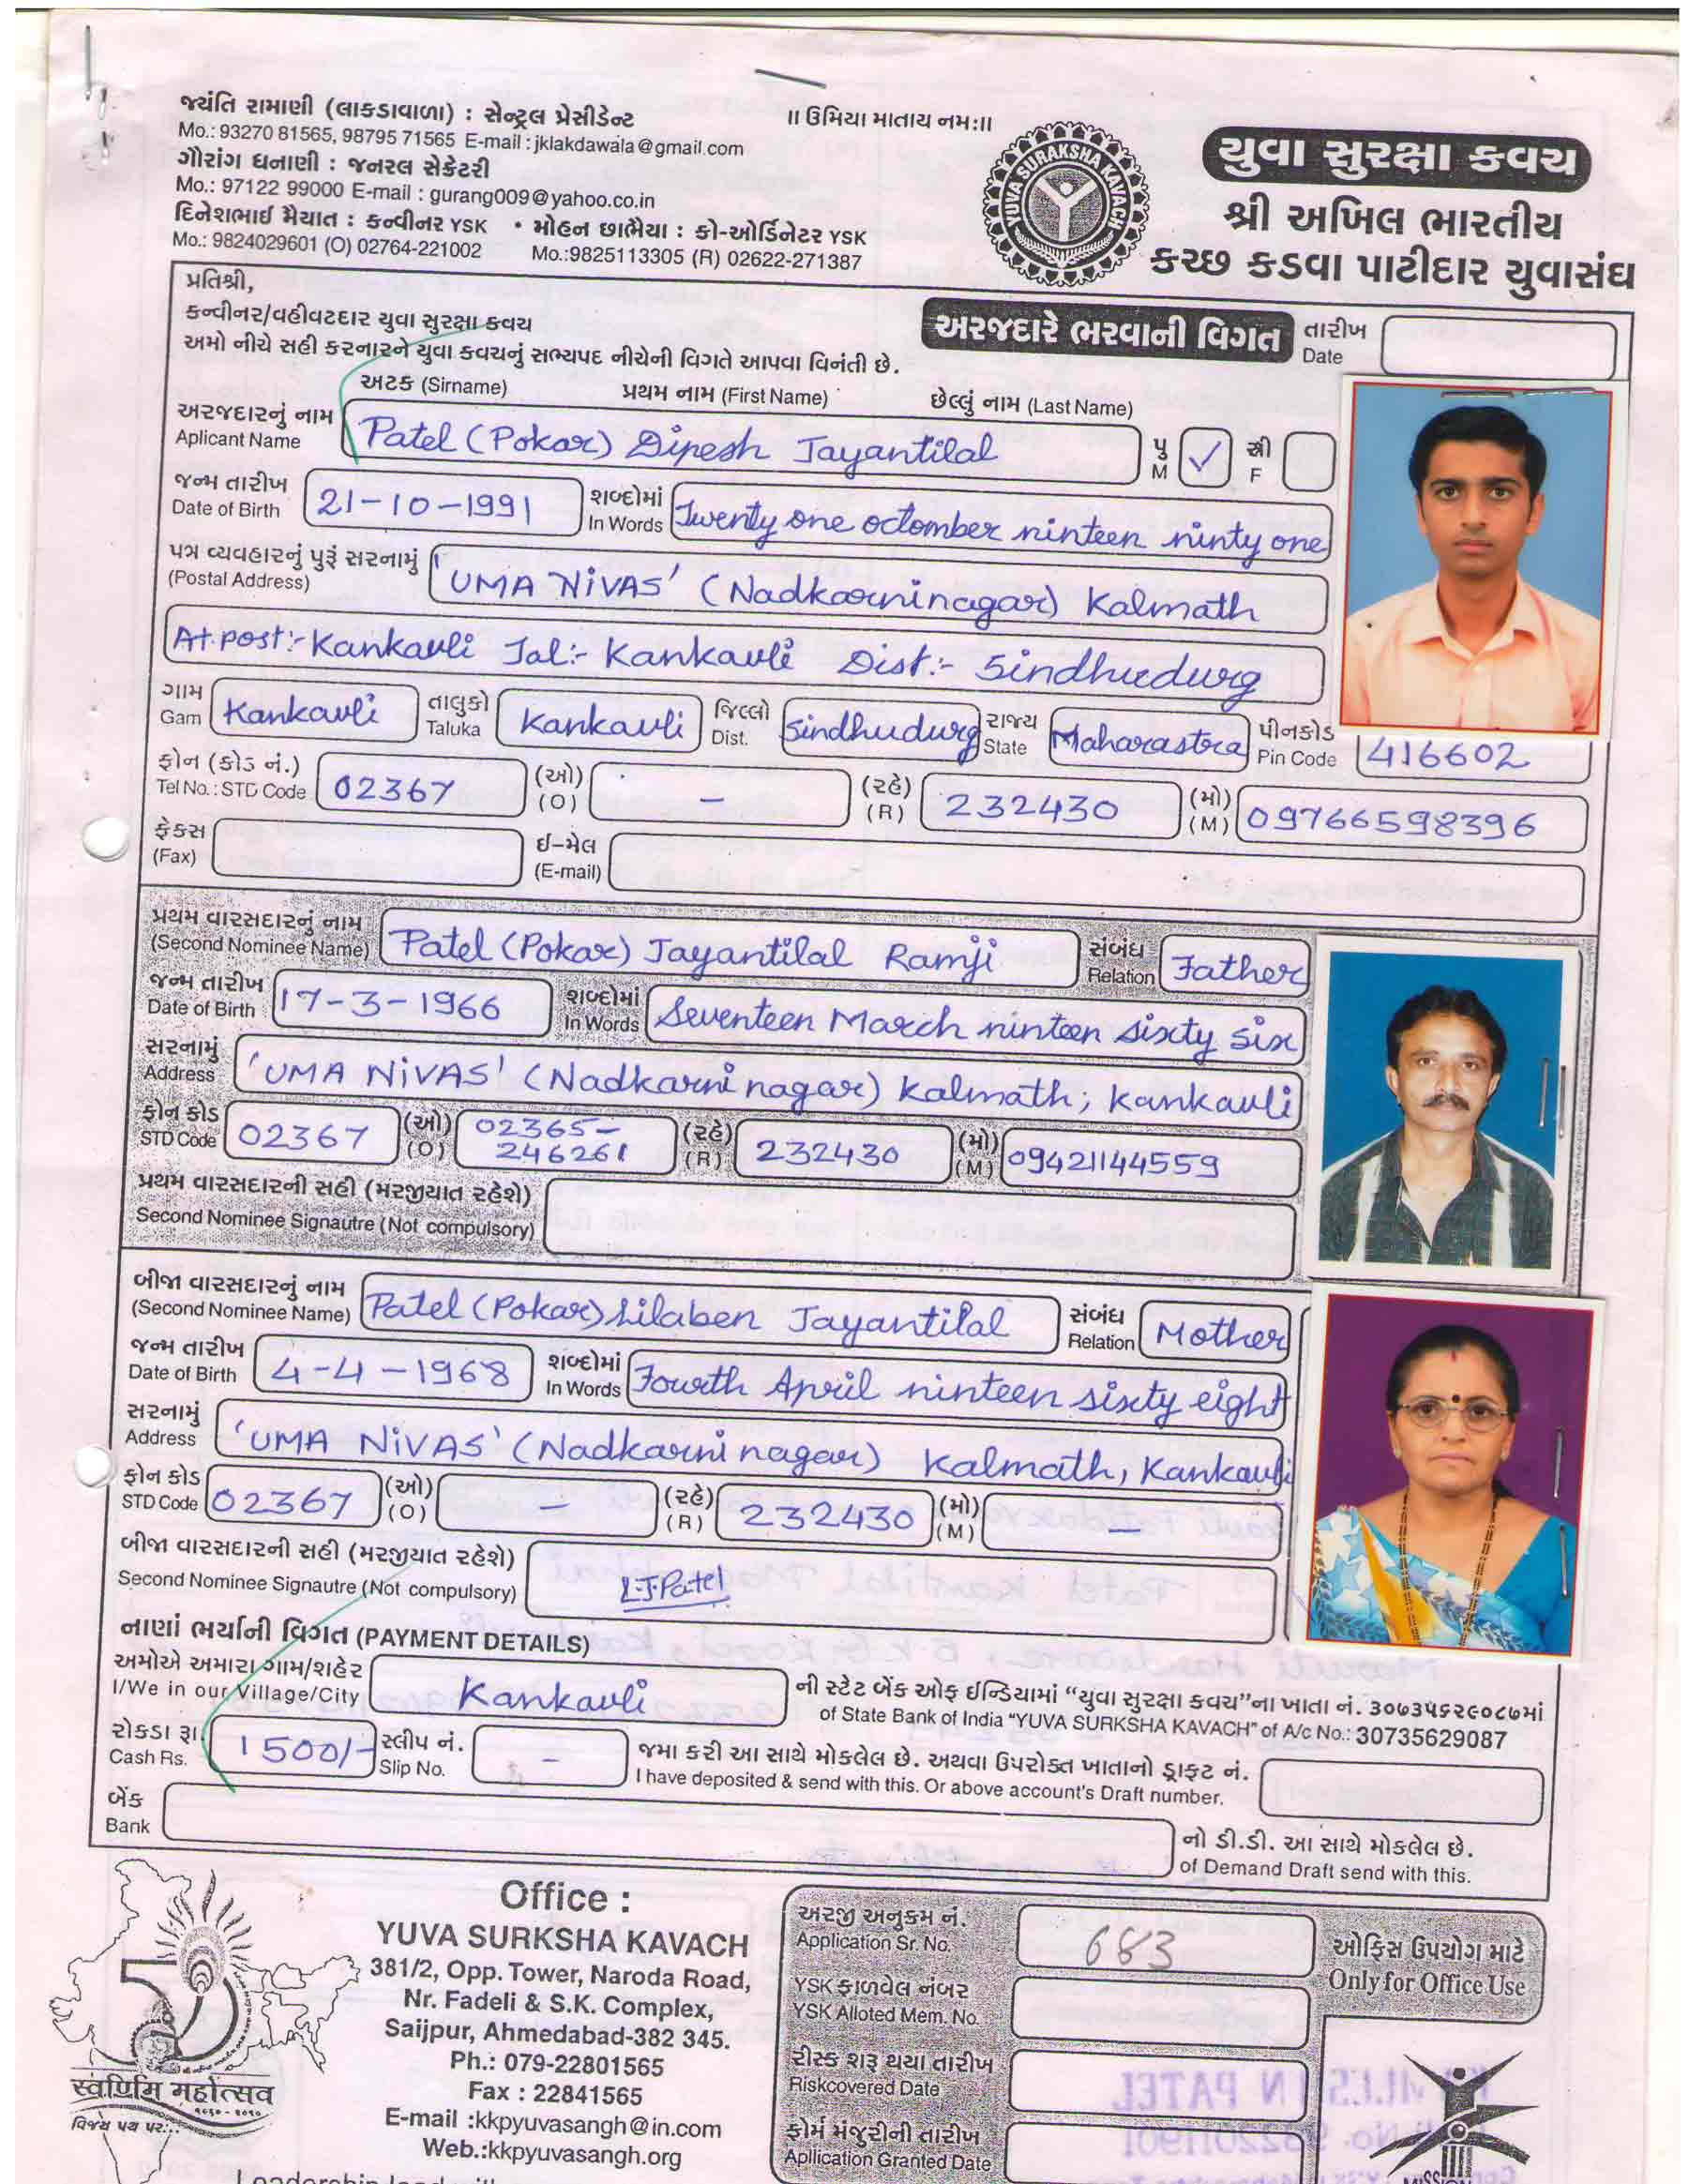 જયંતિ રામાણી (લાકડાવાળા) : સેન્ટ્રલ પ્રેસીડેન્ટ
Mo.: 93270 81565, 98795 71565 E-mail : jklakdawala@gmail.com
ગૌરાંગ ધનાણી : જનરલ સેક્રેટરી
Mo.: 97122 99000 E-mail : gurang009@yahoo.co.in
દિનેશભાઈ મૈયાત : કન્વીનર YSK • મોહન છાભૈયા : કો-ઓર્ડિનેટર YSK
Mo.: 9824029601 (O) 02764-221002 Mo.:9825113305 (R) 02622-271387
॥ ઉમિયા માતાય નમઃ॥
YUVA SURAKSHA KAVACH
યુવા સુરક્ષા કવચ
શ્રી અખિલ ભારતીય
કચ્છ કડવા પાટીદાર યુવાસંઘ
પ્રતિશ્રી,
કન્વીનર/વહીવટદાર યુવા સુરક્ષા કવચ
અમો નીચે સહી કરનારને યુવા કવચનું સભ્યપદ નીચેની વિગતે આપવા વિનંતી છે.
અરજદારે ભરવાની વિગત
તારીખ
Date
અટક (Sirname) પ્રથમ નામ (First Name) છેલ્લું નામ (Last Name)
અરજદારનું નામ
Aplicant Name
Patel (Pokar) Dipesh Jayantilal
પુ M ✓ સ્ત્રી F
જન્મ તારીખ
Date of Birth
21-10-1991
શબ્દોમાં
In Words
Twenty one octomber ninteen ninty one
પત્ર વ્યવહારનું પુરૂં સરનામું
(Postal Address)
'UMA NIVAS' (Nadkarninagar) Kalmath
At.post:- Kankavli Tal:- Kankavli Dist:- Sindhudurg
ગામ
Gam
Kankavli
તાલુકો
Taluka
Kankavli
જિલ્લો
Dist.
Sindhudurg
રાજ્ય
State
Maharastra
પીનકોડ
Pin Code
416602
ફોન (કોડ નં.)
Tel No. : STD Code
02367
(ઓ)
(O)
-
(રહે)
(R)
232430
(મો)
(M)
09766598396
ફેક્સ
(Fax)
ઈ-મેલ
(E-mail)
પ્રથમ વારસદારનું નામ
(Second Nominee Name)
Patel (Pokar) Jayantilal Ramji
સંબંધ
Relation
Father
જન્મ તારીખ
Date of Birth
17-3-1966
શબ્દોમાં
In Words
Seventeen March ninteen sixty six
સરનામું
Address
'UMA NIVAS' (Nadkarni nagar) Kalmath, Kankavli
ફોન કોડ
STD Code
02367
(ઓ)
(O)
02365-
246261
(રહે)
(R)
232430
(મો)
(M)
09421144559
પ્રથમ વારસદારની સહી (મરજીયાત રહેશે)
Second Nominee Signautre (Not compulsory)
બીજા વારસદારનું નામ
(Second Nominee Name)
Patel (Pokar) Lilaben Jayantilal
સંબંધ
Relation
Mother
જન્મ તારીખ
Date of Birth
4-4-1968
શબ્દોમાં
In Words
Fourth April ninteen sixty eight
સરનામું
Address
'UMA NIVAS' (Nadkarni nagar) Kalmath, Kankavli
ફોન કોડ
STD Code
02367
(ઓ)
(O)
-
(રહે)
(R)
232430
(મો)
(M)
-
બીજા વારસદારની સહી (મરજીયાત રહેશે)
Second Nominee Signautre (Not compulsory)
L.J.Patel
નાણાં ભર્યાની વિગત (PAYMENT DETAILS)
અમોએ અમારા ગામ/શહેર
I/We in our Village/City
Kankavli
ની સ્ટેટ બેંક ઓફ ઈન્ડિયામાં “યુવા સુરક્ષા કવચ”ના ખાતા નં. ૩૦૭૩૫૬૨૯૦૮૭માં
of State Bank of India “YUVA SURKSHA KAVACH” of A/c No.: 30735629087
રોકડા રૂા.
Cash Rs.
1500/-
સ્લીપ નં.
Slip No.
-
જમા કરી આ સાથે મોકલેલ છે. અથવા ઉપરોક્ત ખાતાનો ડ્રાફ્ટ નં.
I have deposited & send with this. Or above account's Draft number.
બેંક
Bank
નો ડી.ડી. આ સાથે મોકલેલ છે.
of Demand Draft send with this.
स्वर्णिम महोत्सव
વિજય પથ પર...
Office :
YUVA SURKSHA KAVACH
381/2, Opp. Tower, Naroda Road,
Nr. Fadeli & S.K. Complex,
Saijpur, Ahmedabad-382 345.
Ph.: 079-22801565
Fax : 22841565
E-mail :kkpyuvasangh@in.com
Web.:kkpyuvasangh.org
અરજી અનુક્રમ નં.
Application Sr. No.
683
YSK ફાળવેલ નંબર
YSK Alloted Mem. No.
રીસ્ક શરૂ થયા તારીખ
Riskcovered Date
ફોર્મ મંજુરીની તારીખ
Apllication Granted Date
ઓફિસ ઉપયોગ માટે
Only for Office Use
MISSION